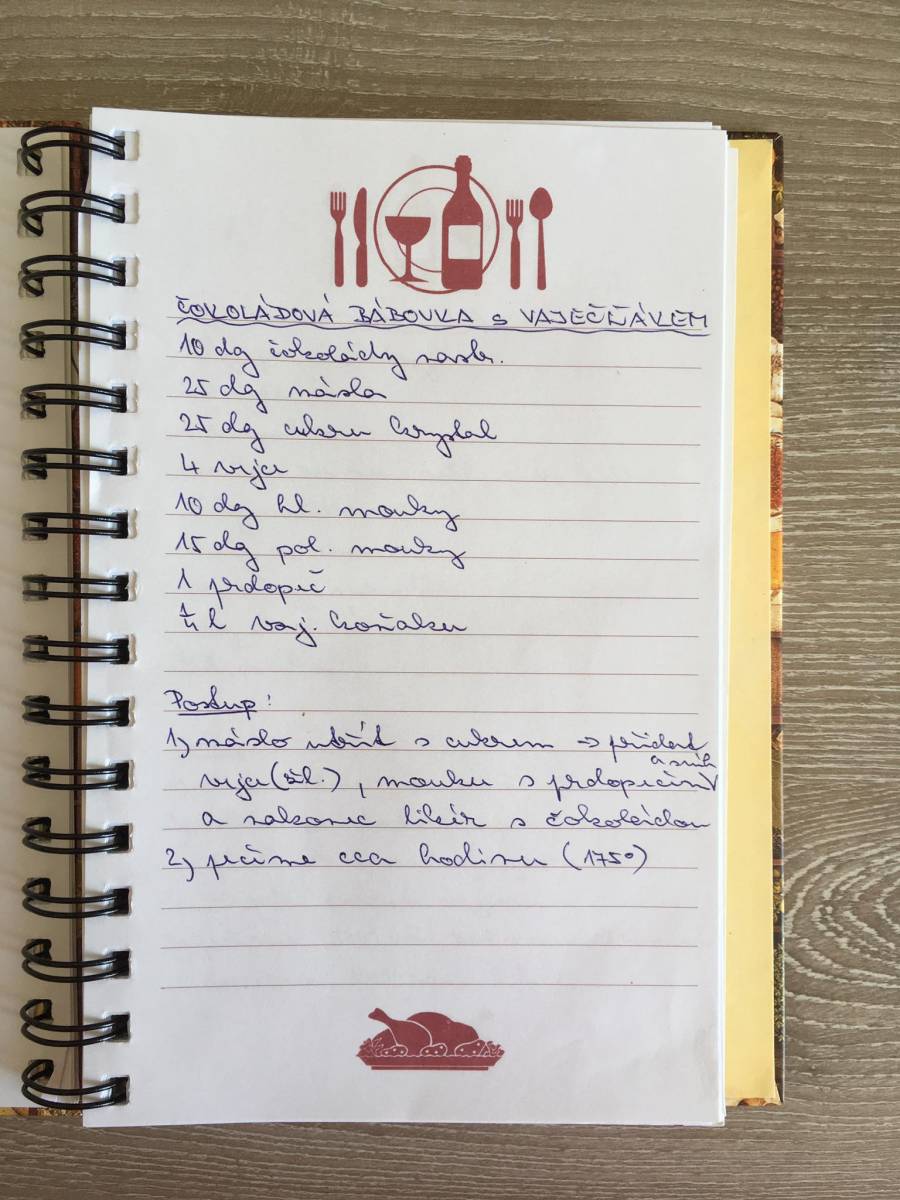 ČOKOLÁDOVÁ BÁBOVKA S VAJEČŇÁKEM
10 dg čokolády nastr.
25 dg másla
25 dg cukru krystal
4 vejce
10 dg hl. mouky
15 dg pol. mouky
1 prdopeč
1/4 l vaj. koňaku
Postup:
1, máslo utřít s cukrem → přidat
a sníh
vejce (žl.), mouku s prdopečem
a nakonec likér s čokoládou
2, pečeme cca hodinu (175°)